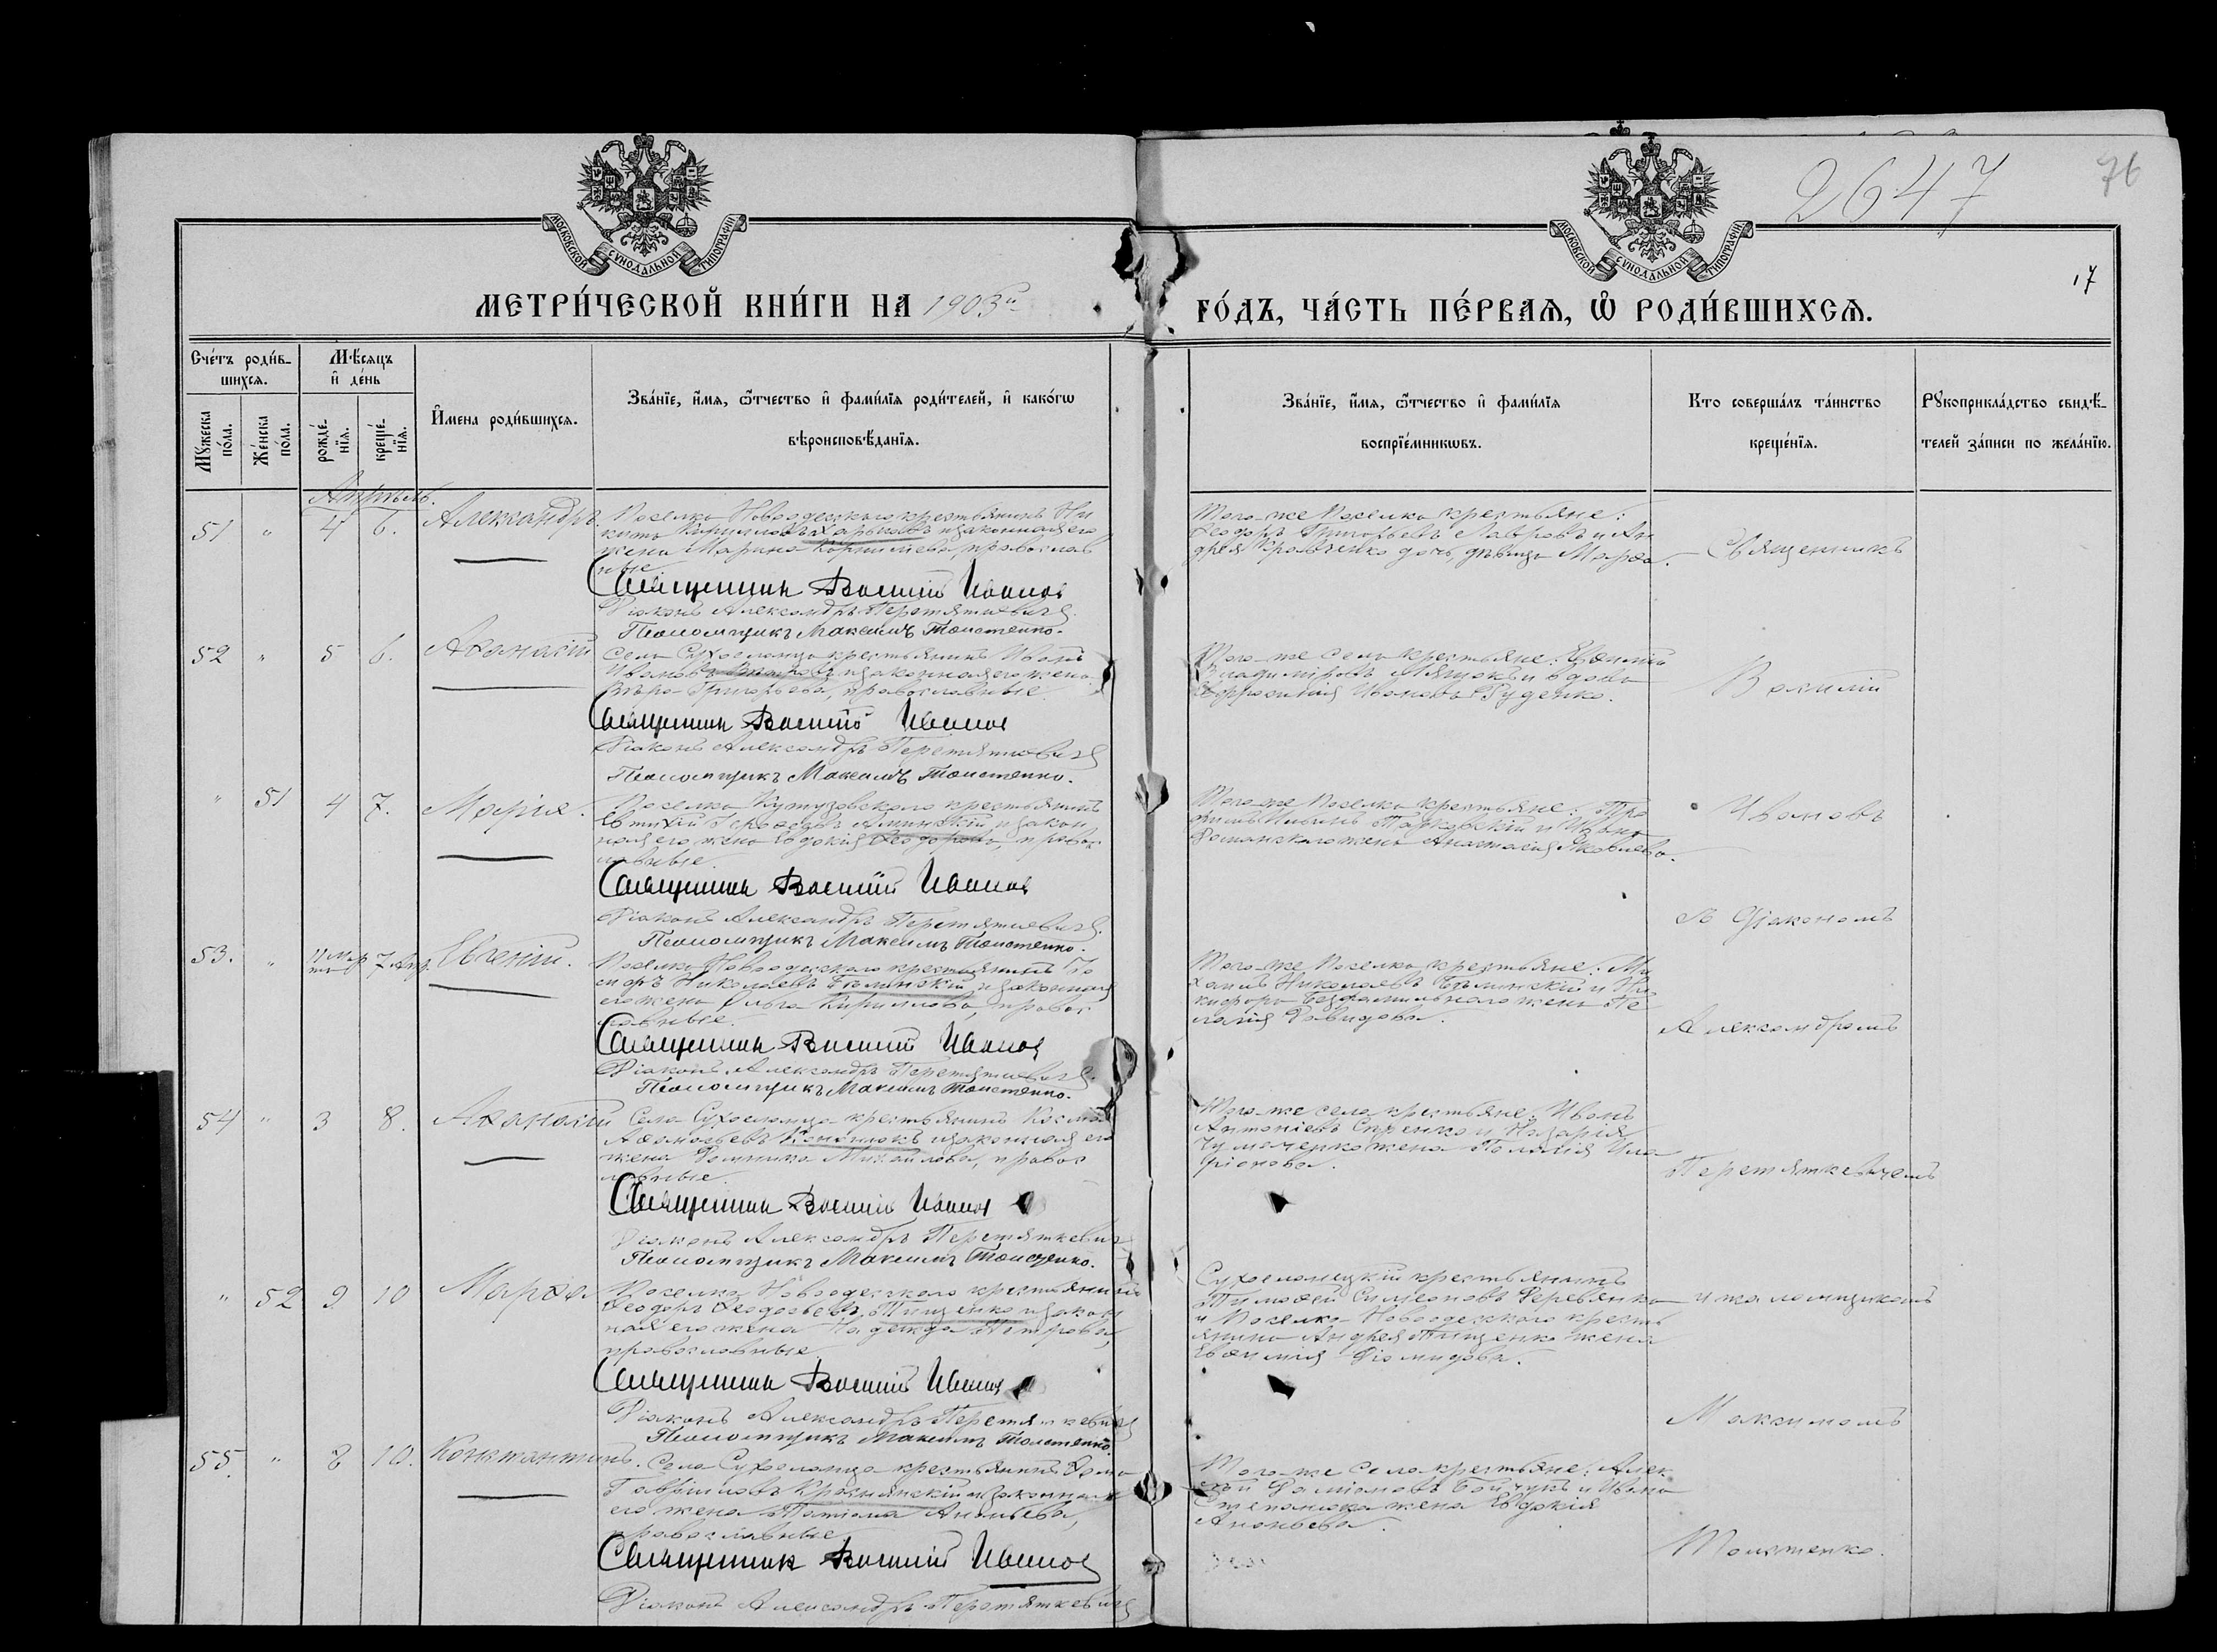 2647
76
17
МОСКОВСКОЙ СѴНОДАЛЬНОЙ ТИПОГРАФІИ
МОСКОВСКОЙ СѴНОДАЛЬНОЙ ТИПОГРАФІИ
МЕТРИ́ЧЕСКОЙ КНИ́ГИ НА 1903й
ГО́ДЪ, ЧА́СТЬ ПЕ́РВАѦ, Ѡ҆ РОДИ́ВШИХСѦ.
Сче́тъ роди́в-
шихсѧ.
Мꙋ́жеска по́ла.
Же́нска по́ла.
Мѣ́сѧцъ
и҆ де́нь
рожде́-
нїѧ.
креще́-
нїѧ.
И҆мена роди́вшихсѧ.
Зва́нїе, и҆́мѧ, ѻ҆́тчество и҆ фами́лїѧ роди́телей, и҆ како́гѡ
вѣроисповѣ́данїѧ.
Зва́нїе, и҆́мѧ, ѻ҆́тчество и҆ фами́лїѧ
воспрїе́мникѡвъ.
Кто соверша́лъ та́инство
креще́нїѧ.
Рꙋкоприкла́дство свидѣ́-
телей за́писи по жела́нїю.
Апрѣль.
51 " 4 6. Александръ.
Поселка Новоодесскаго крестьянинъ Ни
кита Кирилловъ Харьковъ и законная его
жена Марина Корнилиева, православ
ные.
Священник Василий Иванов
Діаконъ Александръ Перетяткевичъ
Псаломщикъ Максимъ Толстенко.
Того-же поселка крестьяне:
Ѳеодоръ Григорьевъ Лавровъ и Ан
дрея Кравченко дочь, дѣвица Марѳа.
Священникъ
52 " 5 6. Аѳанасій
Села Сухоеланца крестьянинъ Иванъ
Ивановъ и законная его жена
Вѣра Григорьева, православные
Священник Василий Иванов
Діаконъ Александръ Перетяткевичъ
Псаломщикъ Максимъ Толстенко.
Того-же села крестьяне: Евѳимій
Владиміровъ и вдова
Евфросинія Иванова Руденко.
Василій
" 51 4 7. Марія.
Поселка Кутузовскаго крестьянинъ
Евтихій и закон
ная его жена Евдокія Ѳеодорова, право
славные.
Священник Василий Иванов
Діаконъ Александръ Перетяткевичъ
Псаломщикъ Максимъ Толстенко.
Того-же поселка крестьяне: Тро
фимъ Ильинъ и Ивана
жена Анастасія Яковлева.
Ивановъ
съ Діакономъ
53. " 11 Мар
та 7 Апр. Евгеній.
Поселка Новоодесскаго крестьянинъ Іо
сифъ Николаевъ Бѣлинскій и законная
его жена Ольга Кириллова, правос
лавные.
Священник Василий Иванов
Діаконъ Александръ Перетяткевичъ
Псаломщикъ Максимъ Толстенко.
Того-же поселка крестьяне: Ми
хаилъ Николаевъ Бѣлинскій и Ни
кифора Безфамильнаго жена Пе
лагія Давидова.
Александромъ
54 " 3 8. Аѳанасій
Села Сухоеланца крестьянинъ Косма
Аѳанасьевъ и законная его
жена Домника Михайлова, правос
лавные.
Священник Василий Иванов
Діаконъ Александръ Перетяткевичъ
Псаломщикъ Максимъ Толстенко.
Того-же села крестьяне: Иванъ
Антоніевъ и Назарія
жена Пелагія Ила
ріонова.
Перетяткевичемъ
" 52 9 10 Марѳа
Поселка Новоодесскаго крестьянинъ
Ѳеодоръ Ѳеодосьевъ Тищенко и закон
ная его жена Надежда Петрова,
православные
Священник Василий Иванов
Діаконъ Александръ Перетяткевичъ
Псаломщикъ Максимъ Толстенко.
Сухоеланецкій крестьянинъ
Тимоѳей Симеоновъ Деревянко
и поселка Новоодесскаго кресть
янина Андрея Тищенко жена
Евѳимія Діомидова.
и псаломщикомъ
Максимомъ
55. " 8 10. Константинъ.
Села Сухоеланца крестьянинъ Ѳома
Гавріиловъ Краснянскій и законная
его жена Татіана Ананьева,
православные
Священник Василий Иванов
Діаконъ Александръ Перетяткевичъ
Того-же села крестьяне: Алек
сѣй Даміановъ Бойчукъ и Ивана
Степанюка жена Евдокія
Ананьева.
Толстенко.